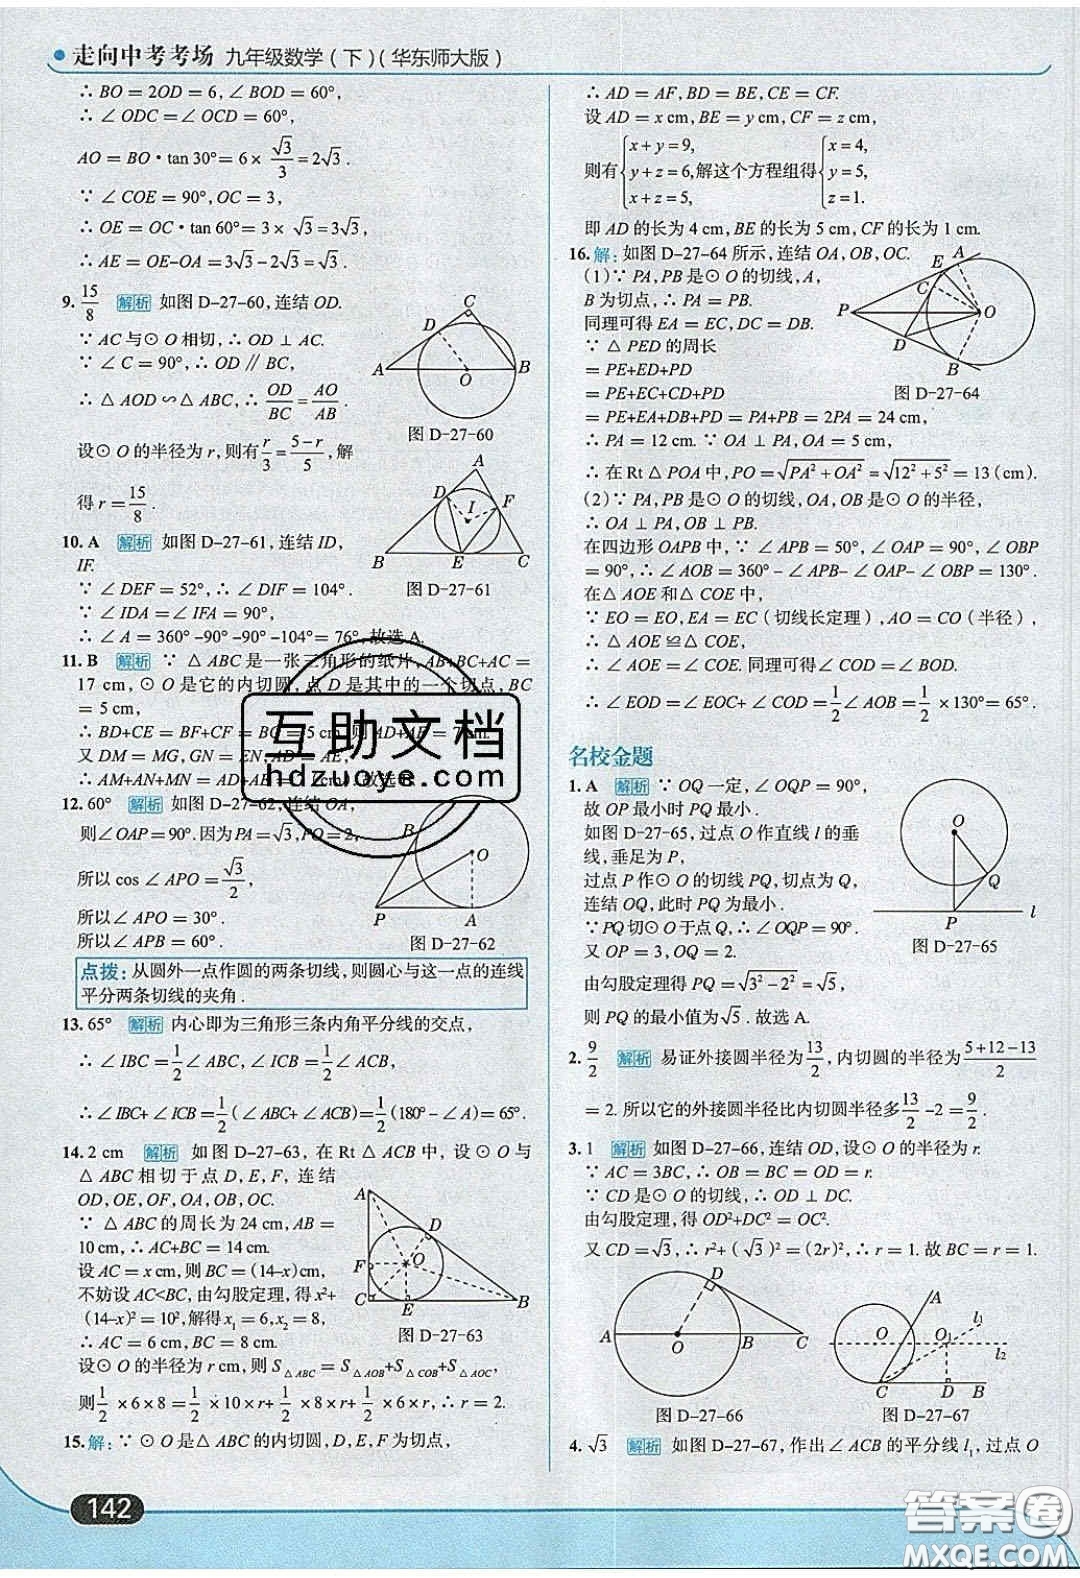 走向中考考场 九年级数学(下)(华东师大版)
∴BO=2OD=6,∠BOD=60°,
∴∠ODC=∠OCD=60°,
AO=BO·tan30°=6×√3/3=2√3.
∵∠COE=90°,OC=3,
∴OE=OC·tan60°=3×√3=3√3,
∴AE=OE-OA=3√3-2√3=√3.
9. 15/8 解析 如图D-27-60,连结OD.
∵AC与⊙O相切,∴OD⊥AC.
∵∠C=90°,∴OD∥BC,
∴△AOD∽△ABC,∴OD/BC=AO/AB.
设⊙O的半径为r,则有r/3=(5-r)/5,解
得r=15/8.
A
B
C
D
O
图D-27-60
10. A 解析 如图D-27-61,连结ID,
IF.
∵∠DEF=52°,∴∠DIF=104°.
∵∠IDA=∠IFA=90°,
∴∠A=360°-90°-90°-104°=76°,故选A.
A
D
I
F
B
E
C
图D-27-61
11. B 解析 ∵△ABC是一张三角形的纸片,AB+BC+AC=
17cm,⊙O是它的内切圆,点D是其中的一个切点,BC
=5cm,
∴BD+CE=BF+CF=BC=5cm,则AD+AE=7cm.
又DM=MG,GN=EN,AD=AE,
∴AM+AN+MN=AD+AE=7(cm).故选B.
12. 60° 解析 如图D-27-62,连结OA,
则∠OAP=90°.因为PA=√3,PO=2,
所以cos∠APO=√3/2,
所以∠APO=30°.
所以∠APB=60°.
B
O
P
A
图D-27-62
点拨:从圆外一点作圆的两条切线,则圆心与这一点的连线
平分两条切线的夹角.
13. 65° 解析 内心即为三角形三条内角平分线的交点,
∴∠IBC=1/2∠ABC,∠ICB=1/2∠ACB,
∴∠IBC+∠ICB=1/2(∠ABC+∠ACB)=1/2(180°-∠A)=65°.
14. 2cm 解析 如图D-27-63,在Rt△ACB中,设⊙O与
△ABC相切于点D,E,F,连结
OD,OE,OF,OA,OB,OC.
∵△ABC的周长为24cm,AB=
10cm,∴AC+BC=14cm.
设AC=xcm,则BC=(14-x)cm,
不妨设AC<BC,由勾股定理,得x²+
(14-x)²=10²,解得x₁=6,x₂=8,
∴AC=6cm,BC=8cm.
设⊙O的半径为rcm,则S△ABC=S△AOB+S△COB+S△AOC,
则1/2×6×8=1/2×10r+1/2×8r+1/2×6r,∴r=2.
A
D
O
F
C
E
B
图D-27-63
15. 解:∵⊙O是△ABC的内切圆,D,E,F为切点,
142
∴AD=AF,BD=BE,CE=CF.
设AD=xcm,BE=ycm,CF=zcm,
则有{x+y=9, y+z=6, x+z=5, 解这个方程组得{x=4, y=5, z=1.
即AD的长为4cm,BE的长为5cm,CF的长为1cm.
16. 解:如图D-27-64所示,连结OA,OB,OC.
(1)∵PA,PB是⊙O的切线,A,
B为切点,∴PA=PB.
同理可得EA=EC,DC=DB.
∵△PED的周长
=PE+ED+PD
=PE+EC+CD+PD
=PE+EA+DB+PD=PA+PB=2PA=24cm,
∴PA=12cm.∵OA⊥PA,OA=5cm,
∴在Rt△POA中,PO=√(PA²+OA²)=√(12²+5²)=13(cm).
A
E
C
P
O
D
B
图D-27-64
(2)∵PA,PB是⊙O的切线,OA,OB是⊙O的半径,
∴OA⊥PA,OB⊥PB.
在四边形OAPB中,∵∠APB=50°,∠OAP=90°,∠OBP
=90°,∴∠AOB=360°-∠APB-∠OAP-∠OBP=130°.
在△AOE和△COE中,
∵EO=EO,EA=EC(切线长定理),AO=CO(半径),
∴△AOE≌△COE,
∴∠AOE=∠COE.同理可得∠COD=∠BOD.
∴∠EOD=∠EOC+∠COD=1/2∠AOB=1/2×130°=65°.
名校金题
1. A 解析 ∵OQ一定,∠OQP=90°,
故OP最小时PQ最小.
如图D-27-65,过点O作直线l的垂
线,垂足为P,
过点P作⊙O的切线PQ,切点为Q,
连结OQ,此时PQ为最小.
∵PQ切⊙O于点Q,∴∠OQP=90°.
又OP=3,OQ=2.
由勾股定理,得PQ=√(3²-2²)=√5,
则PQ的最小值为√5.故选A.
O
Q
P
l
图D-27-65
2. 9/2 解析 易证外接圆半径为13/2,内切圆的半径为(5+12-13)/2
=2.所以它的外接圆半径比内切圆半径多13/2-2=9/2.
3. 1 解析 如图D-27-66,连结OD,设⊙O的半径为r.
∵AC=3BC,∴OB=BC=OD=r.
∵CD是⊙O的切线,∴OD⊥DC.
由勾股定理,得OD²+DC²=OC².
又CD=√3,∴r²+(√3)²=(2r)²,∴r=1.故BC=r=1.
D
A
O
B
C
图D-27-66
A
l₁
O
O₁
l₂
C
D
B
图D-27-67
4. √3 解析 如图D-27-67,作出∠ACB的平分线l₁,过点O
互助文档
hdzuoye.com
答案圈
MXQE.COM